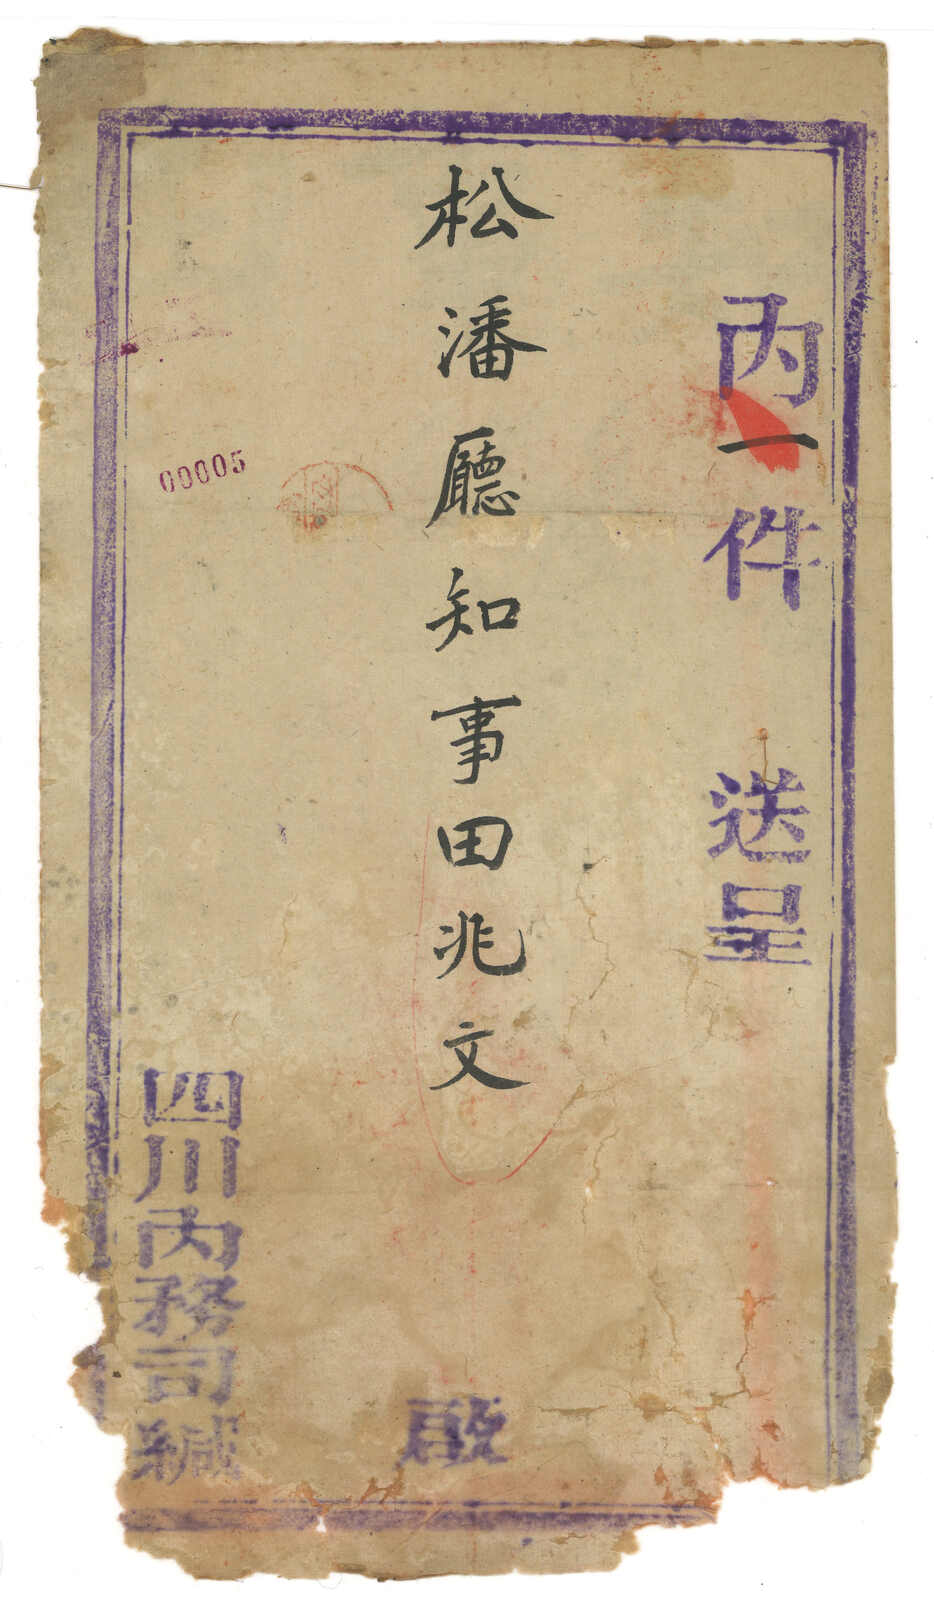 內一件 送呈
松潘廳知事田兆文 啟
四川內務司緘
00005